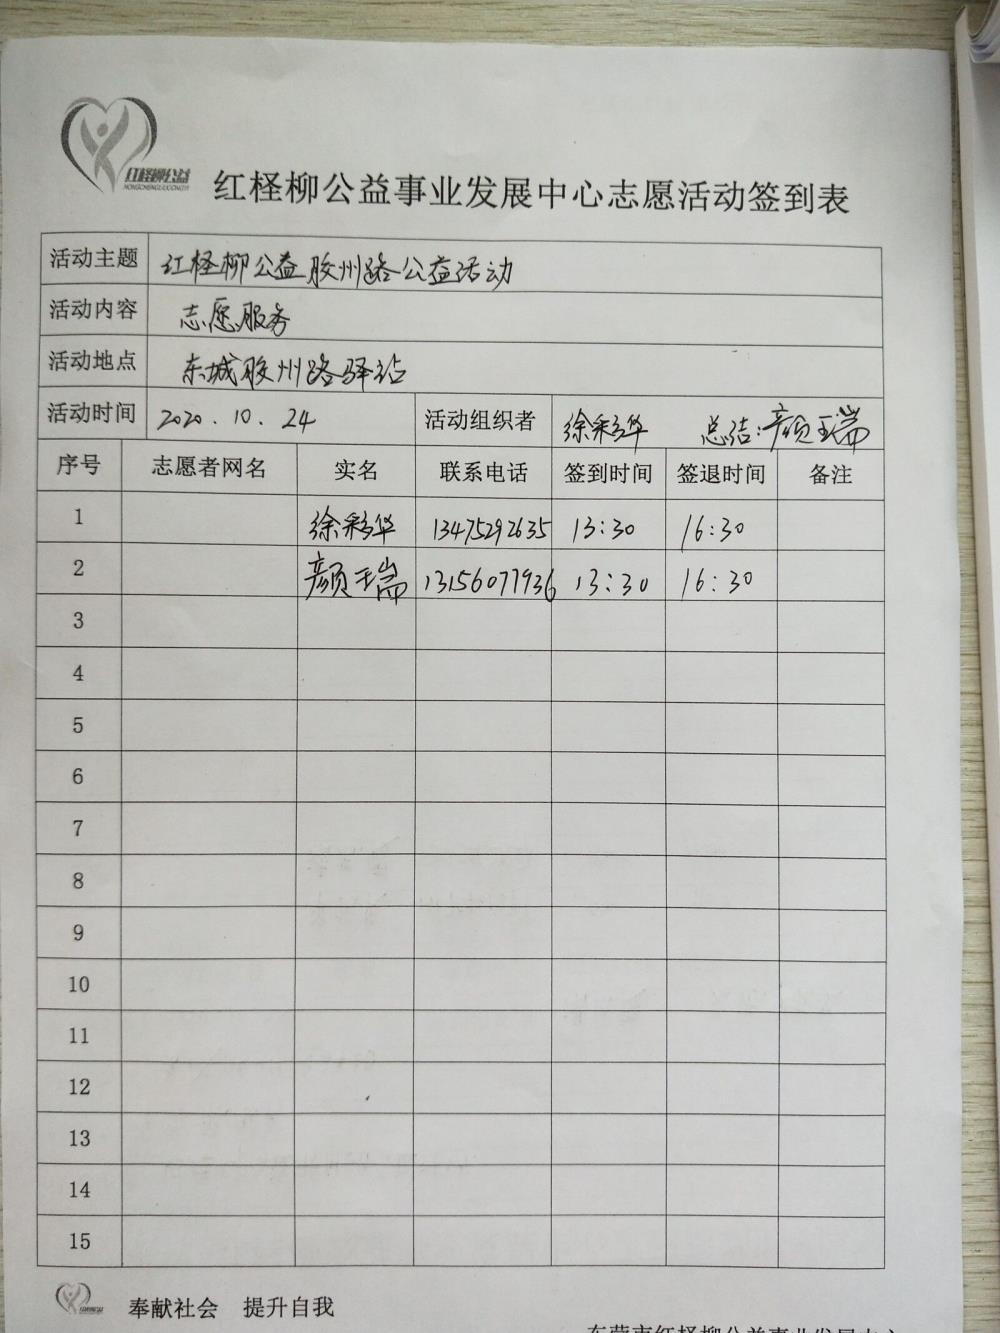 红柽柳公益
HONGCHENGLIUGONGYI
红柽柳公益事业发展中心志愿活动签到表
活动主题 红柽柳公益胶州路公益活动
活动内容 志愿服务
活动地点 东城胶州路驿站
活动时间 2020.10.24 活动组织者 徐彩华 总结:颜玉瑞
序号 志愿者网名 实名 联系电话 签到时间 签退时间 备注
1 徐彩华 13475292635 13:30 16:30
2 颜玉瑞 13156077936 13:30 16:30
3
4
5
6
7
8
9
10
11
12
13
14
15
红柽柳公益
奉献社会 提升自我
东营市红柽柳公益事业发展中心